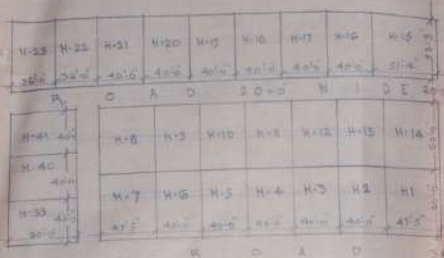 H-23 H-22 H-21 H-20 H-19 H-18 H-17 H-16 H-15
36'-0" 36'-0" 40'-0" 40'-0" 40'-0" 40'-0" 40'-0" 40'-0" 51'-4"
ROAD 20-0 WIDE
H-41 40'-0" H-8 H-9 H-10 H-11 H-12 H-13 H-14
H-40 40'-0"
H-39 40'-0" H-7 H-6 H-5 H-4 H-3 H2 H1
41'-5" 40'-0" 40'-0" 40'-0" 40'-0" 40'-0" 41'-5"
ROAD